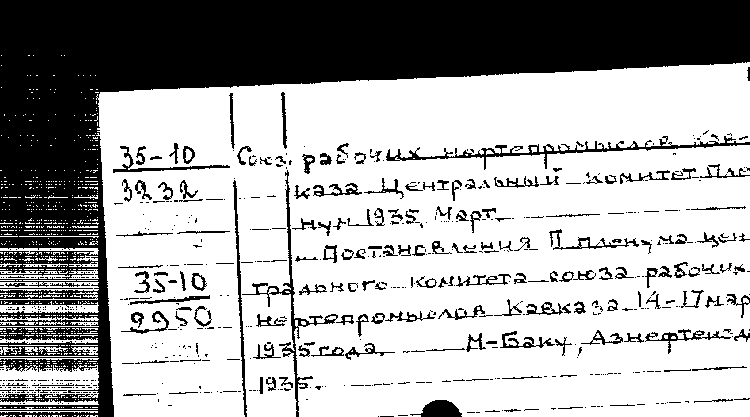 35-10 Союз рабочих нефтепромыслов Кав-
3232 каза Центральный комитет Пле
нум 1935, Март.
Постановления II пленума цен
35-10 трального комитета союза рабочих
2950 нефтепромыслов Кавказа 14-17 мар
1935 года. М-Баку, Азнефтеизд
1935.